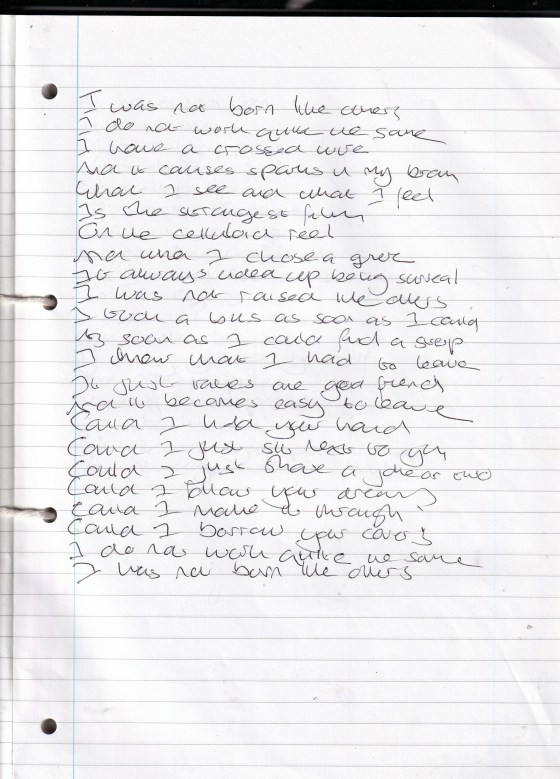 I was not born like others
I do not work quite the same
I have a crossed wire
And it causes sparks in my brain
What I see and what I feel
Is the strangest film
On the celluloid reel
And when I chose a
It always ended up being surreal
I was not raised like others
I took a bus as soon as I could
As soon as I could find a
I knew that I had to leave
It just takes one good friend
And it becomes easy to leave
Could I hold your hand
Could I just sit next to you
Could I just share a joke or two
Could I follow your dreams
Could I make it through
Could I borrow your covers
I do not work quite the same
I was not born like others